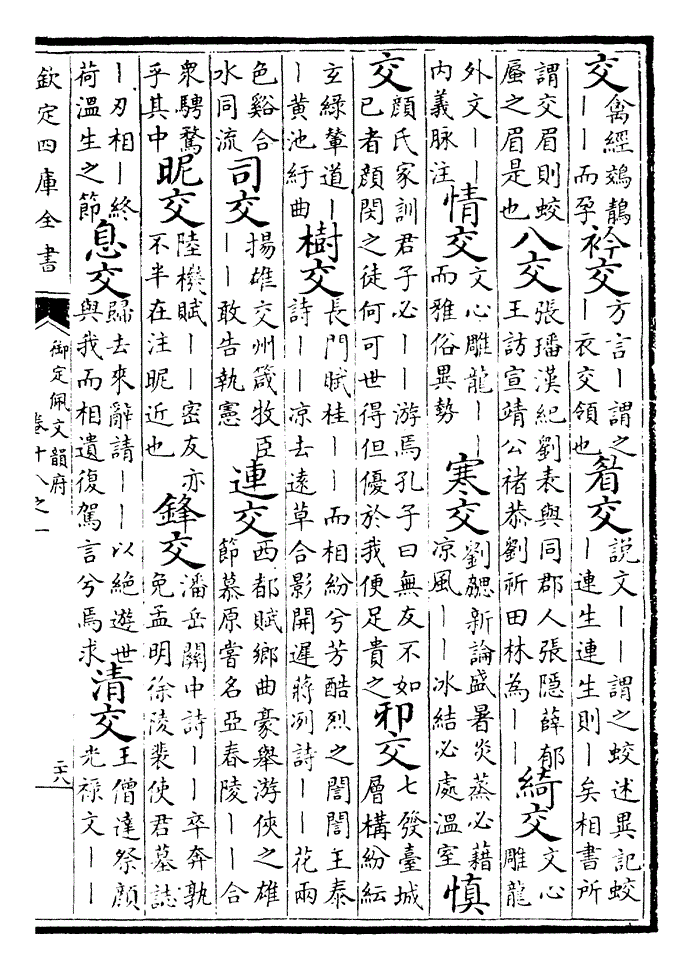 交禽經鵁鶄||而孕衿交方言|謂之|衣交領也睂交說文||謂之蛟述異記蛟|連生連生則|矣相書所
謂交眉則蛟蜃之眉是也八交張璠漢紀劉表與同郡人張隱薛郁王訪宣靖公褚恭劉祈田林為||綺交文心雕龍
外文||内義脉注情交文心雕龍||而雅俗異勢寒交劉勰新論盛暑炎蒸必藉凉風||冰結必處溫室慎
交顔氏家訓君子必||游焉孔子曰無友不如已者顔閔之徒何可世得但優於我便足貴之邪交七發臺城層構紛紜
玄綠輦道||黃池紆曲樹交長門賦桂||而相紛兮芳酷烈之誾誾王泰詩||凉去遠草合影開遲蔣冽詩||花兩
色谿合水同流司交揚雄交州箴牧臣||敢告執憲連交西都賦鄉曲豪舉游俠之雄節慕原嘗名亞春陵||合
衆騁騖乎其中昵交陸機賦||密友亦不半在注昵近也鋒交潘岳關中詩||卒奔孰免孟明徐陵裴使君墓誌
|刃相|終荷溫生之節息交歸去來辭請||以絶遊世與我而相遺復駕言兮焉求清交王僧達祭顔光祿文||
欽定四庫全書
御定佩文韻府
卷十八之一
二十八